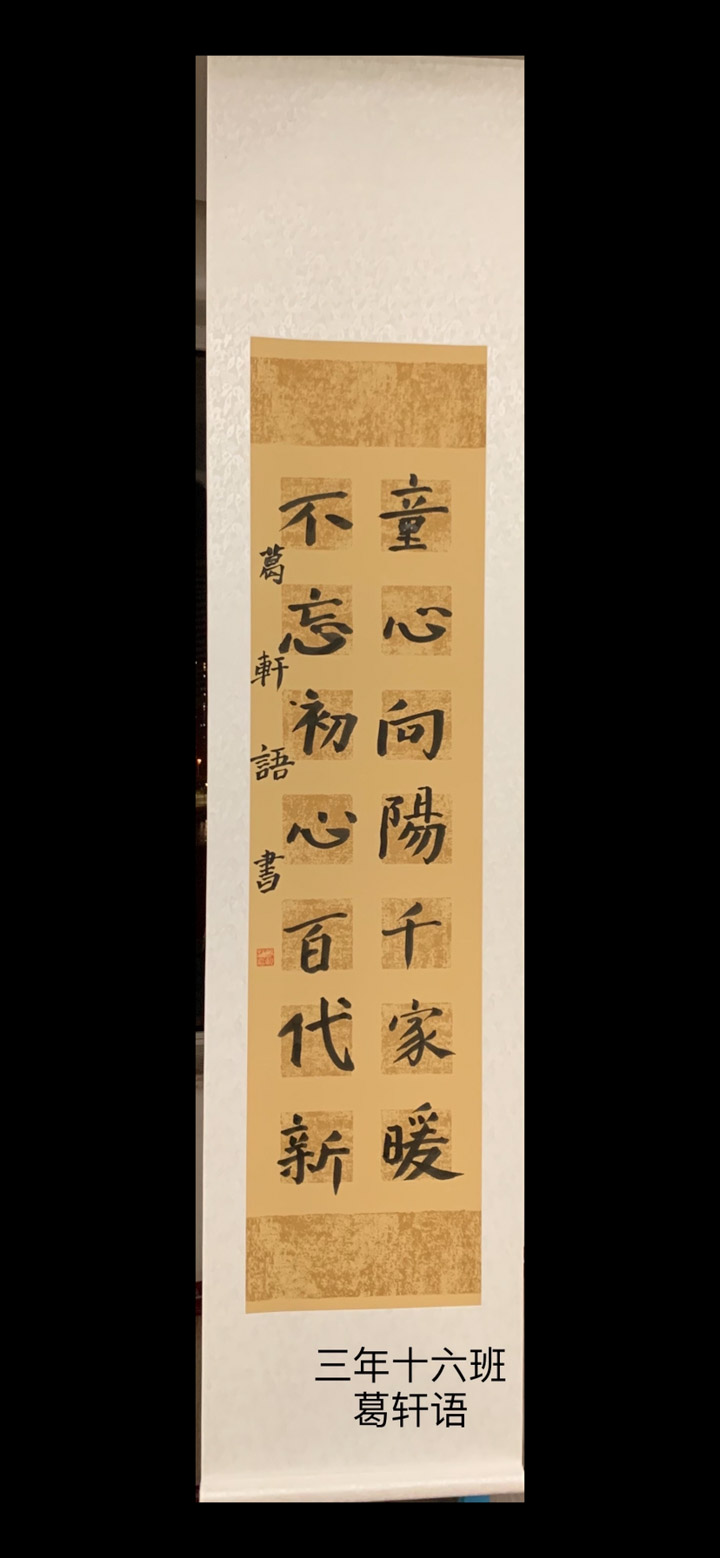 童心向陽千家暖
不忘初心百代新
葛軒語書
三年十六班
葛轩语